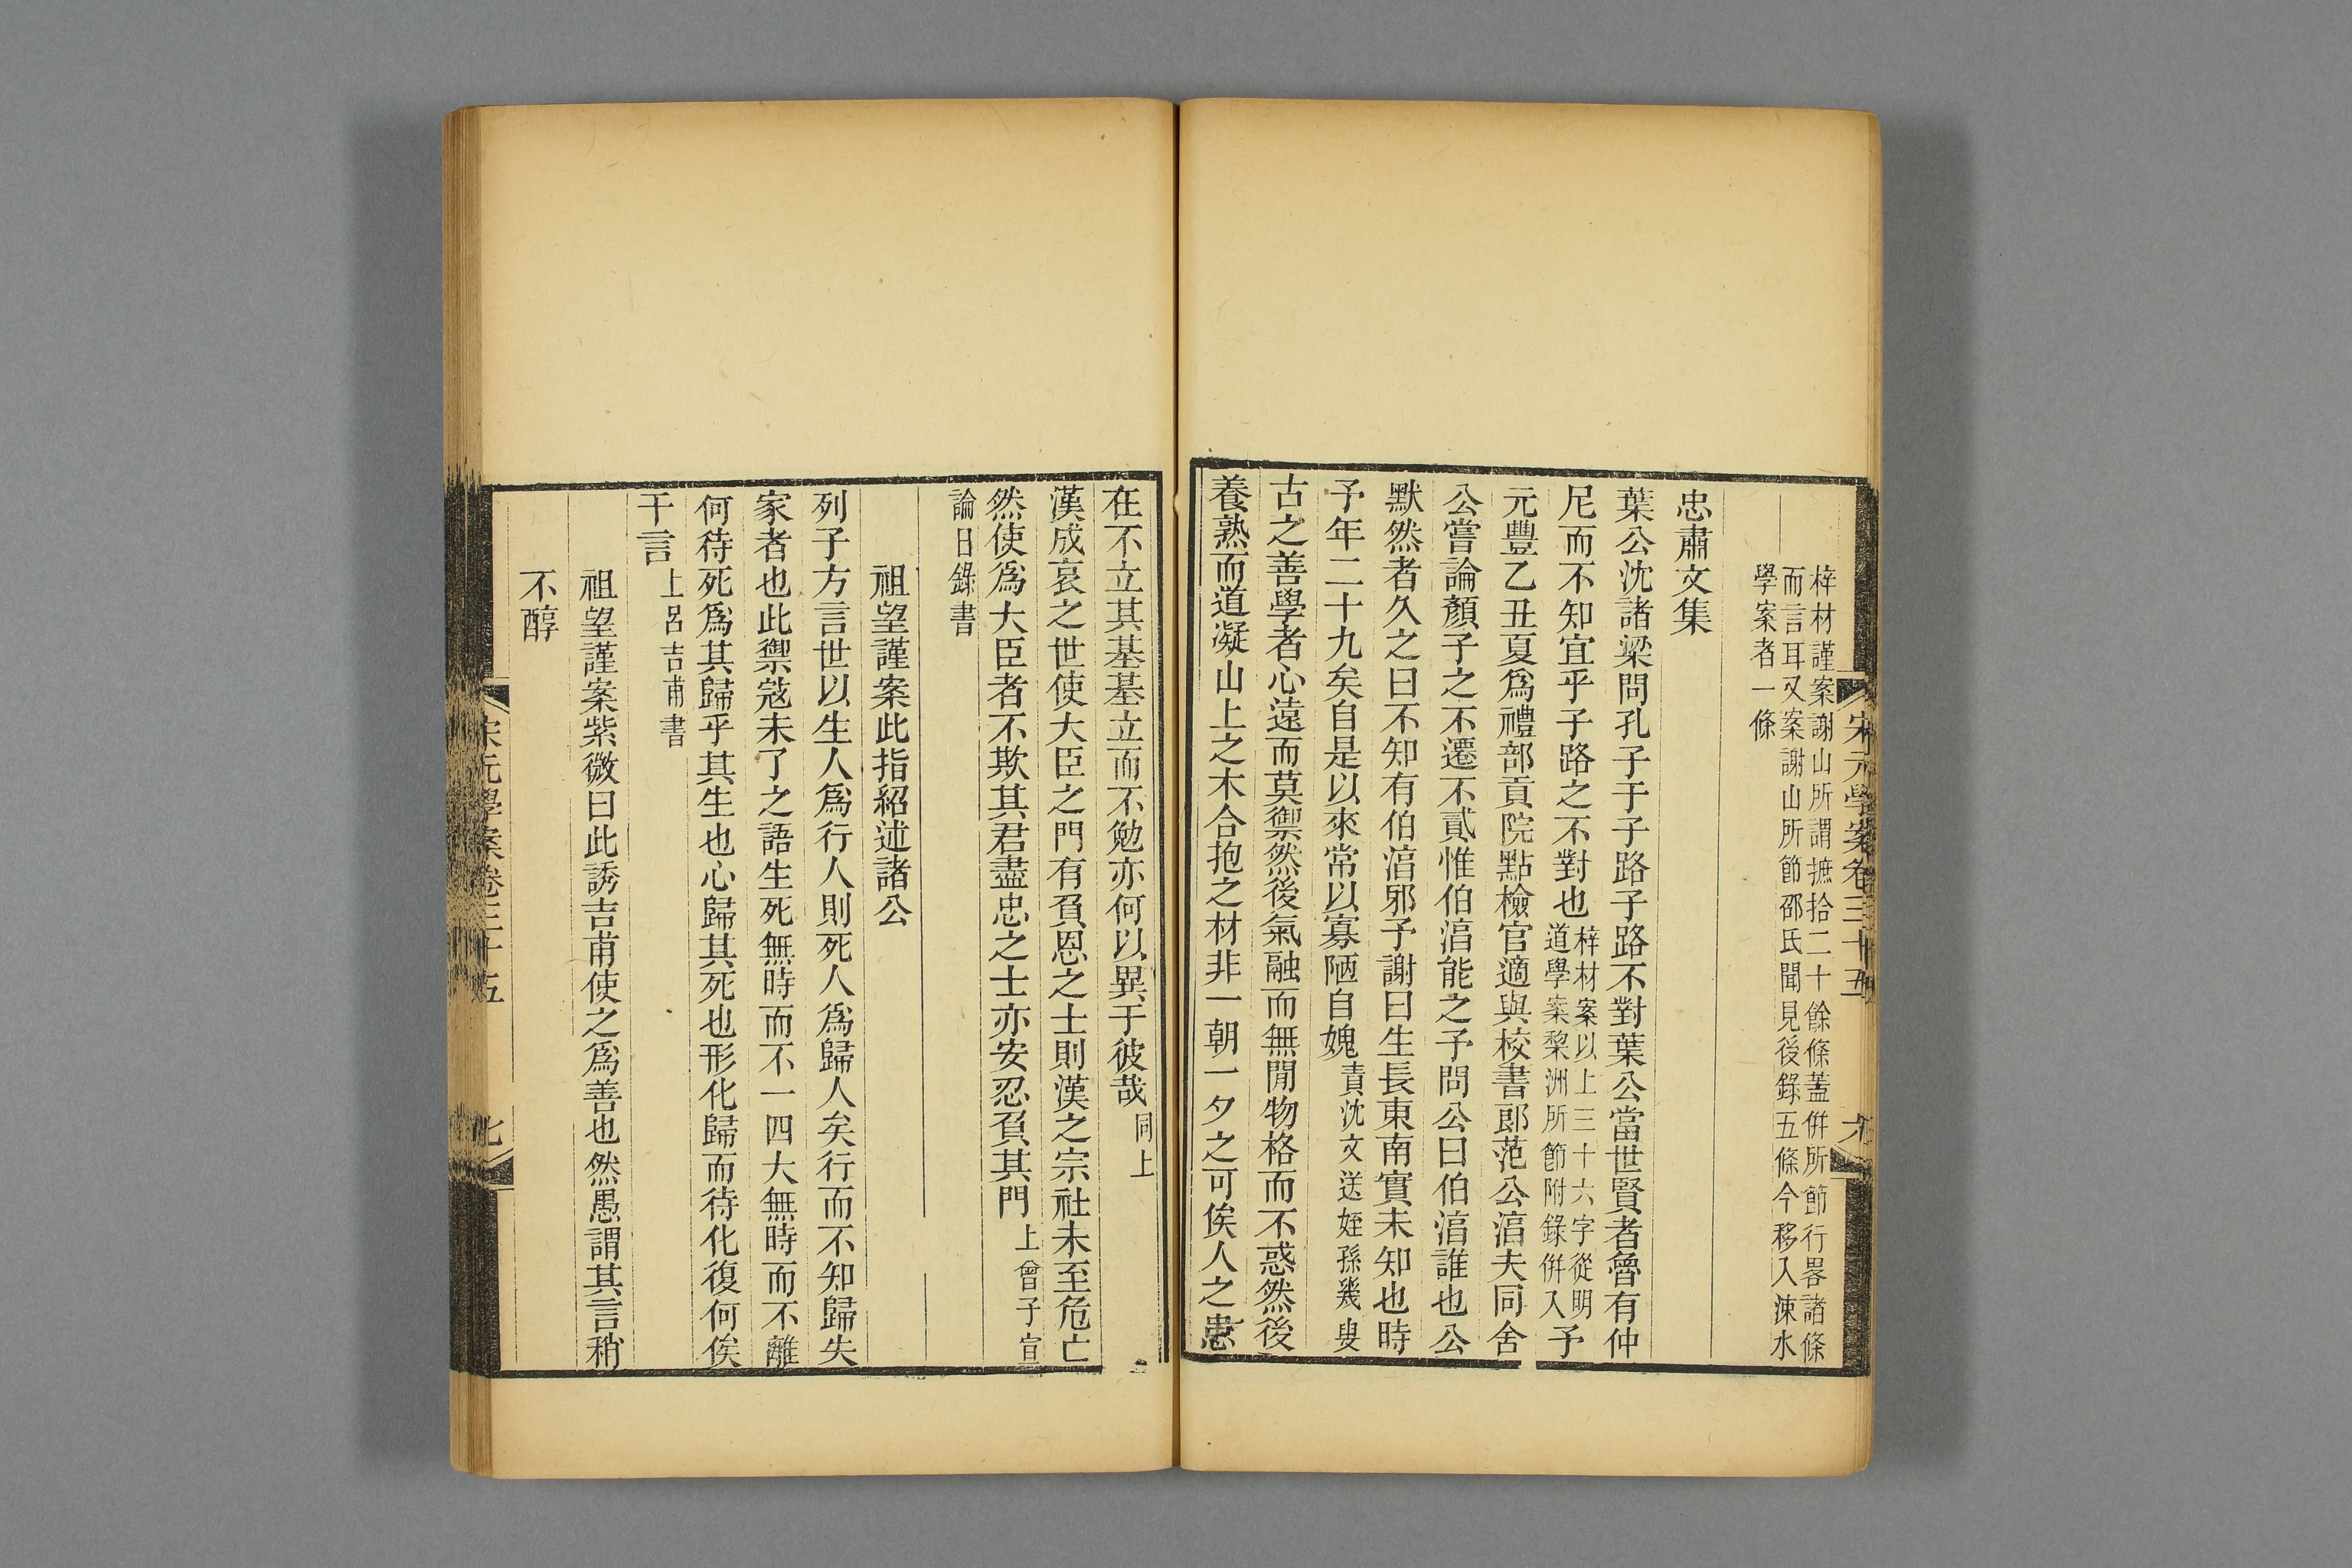 宋元學案卷三十五
梓材謹案謝山所謂摭拾二十餘條蓋併所節行畧諸條
而言耳又案謝山所節邵氏聞見後錄五條今移入涑水
學案者一條
忠肅文集
葉公沈諸梁問孔子于子路子路不對葉公當世賢者魯有仲
尼而不知宜乎子路之不對也
梓材案以上三十六字從明
道學案黎洲所節附錄併入
予
元豐乙丑夏爲禮部貢院點檢官適與校書郎范公淳夫同舍
公嘗論顏子之不遷不貳惟伯淳能之予問公曰伯淳誰也公
默然者久之曰不知有伯淳邪予謝曰生長東南實未知也時
予年二十九矣自是以來常以寡陋自媿責沈文送姪孫幾叟
古之善學者心遠而莫禦然後氣融而無閒物格而不惑然後
養熟而道凝山上之木合抱之材非一朝一夕之可俟人之患
在不立其基基立而不勉亦何以異于彼哉同上
漢成哀之世使大臣之門有負恩之士則漢之宗社未至危亡
然使爲大臣者不欺其君盡忠之士亦安忍負其門上曾子宣
論日錄書
祖望謹案此指紹述諸公
列子方言世以生人爲行人則死人爲歸人矣行而不知歸失
家者也此禦寇未了之語生死無時而不一四大無時而不離
何待死爲其歸乎其生也心歸其死也形化歸而待化復何俟
于言上呂吉甫書
祖望謹案紫微曰此誘吉甫使之爲善也然愚謂其言稍
不醇
宋元學案卷三十五